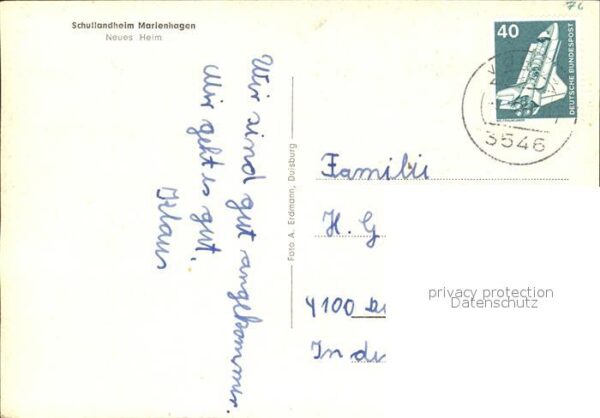 Schullandheim Marienhagen
Neues Heim
76
40
DEUTSCHE BUNDESPOST
3546
Wir sind gut angekommen.
Mir geht es gut.
Klaus
Foto A. Erdmann, Duisburg
Familie
H. G
4100
In de
privacy protection
Datenschutz